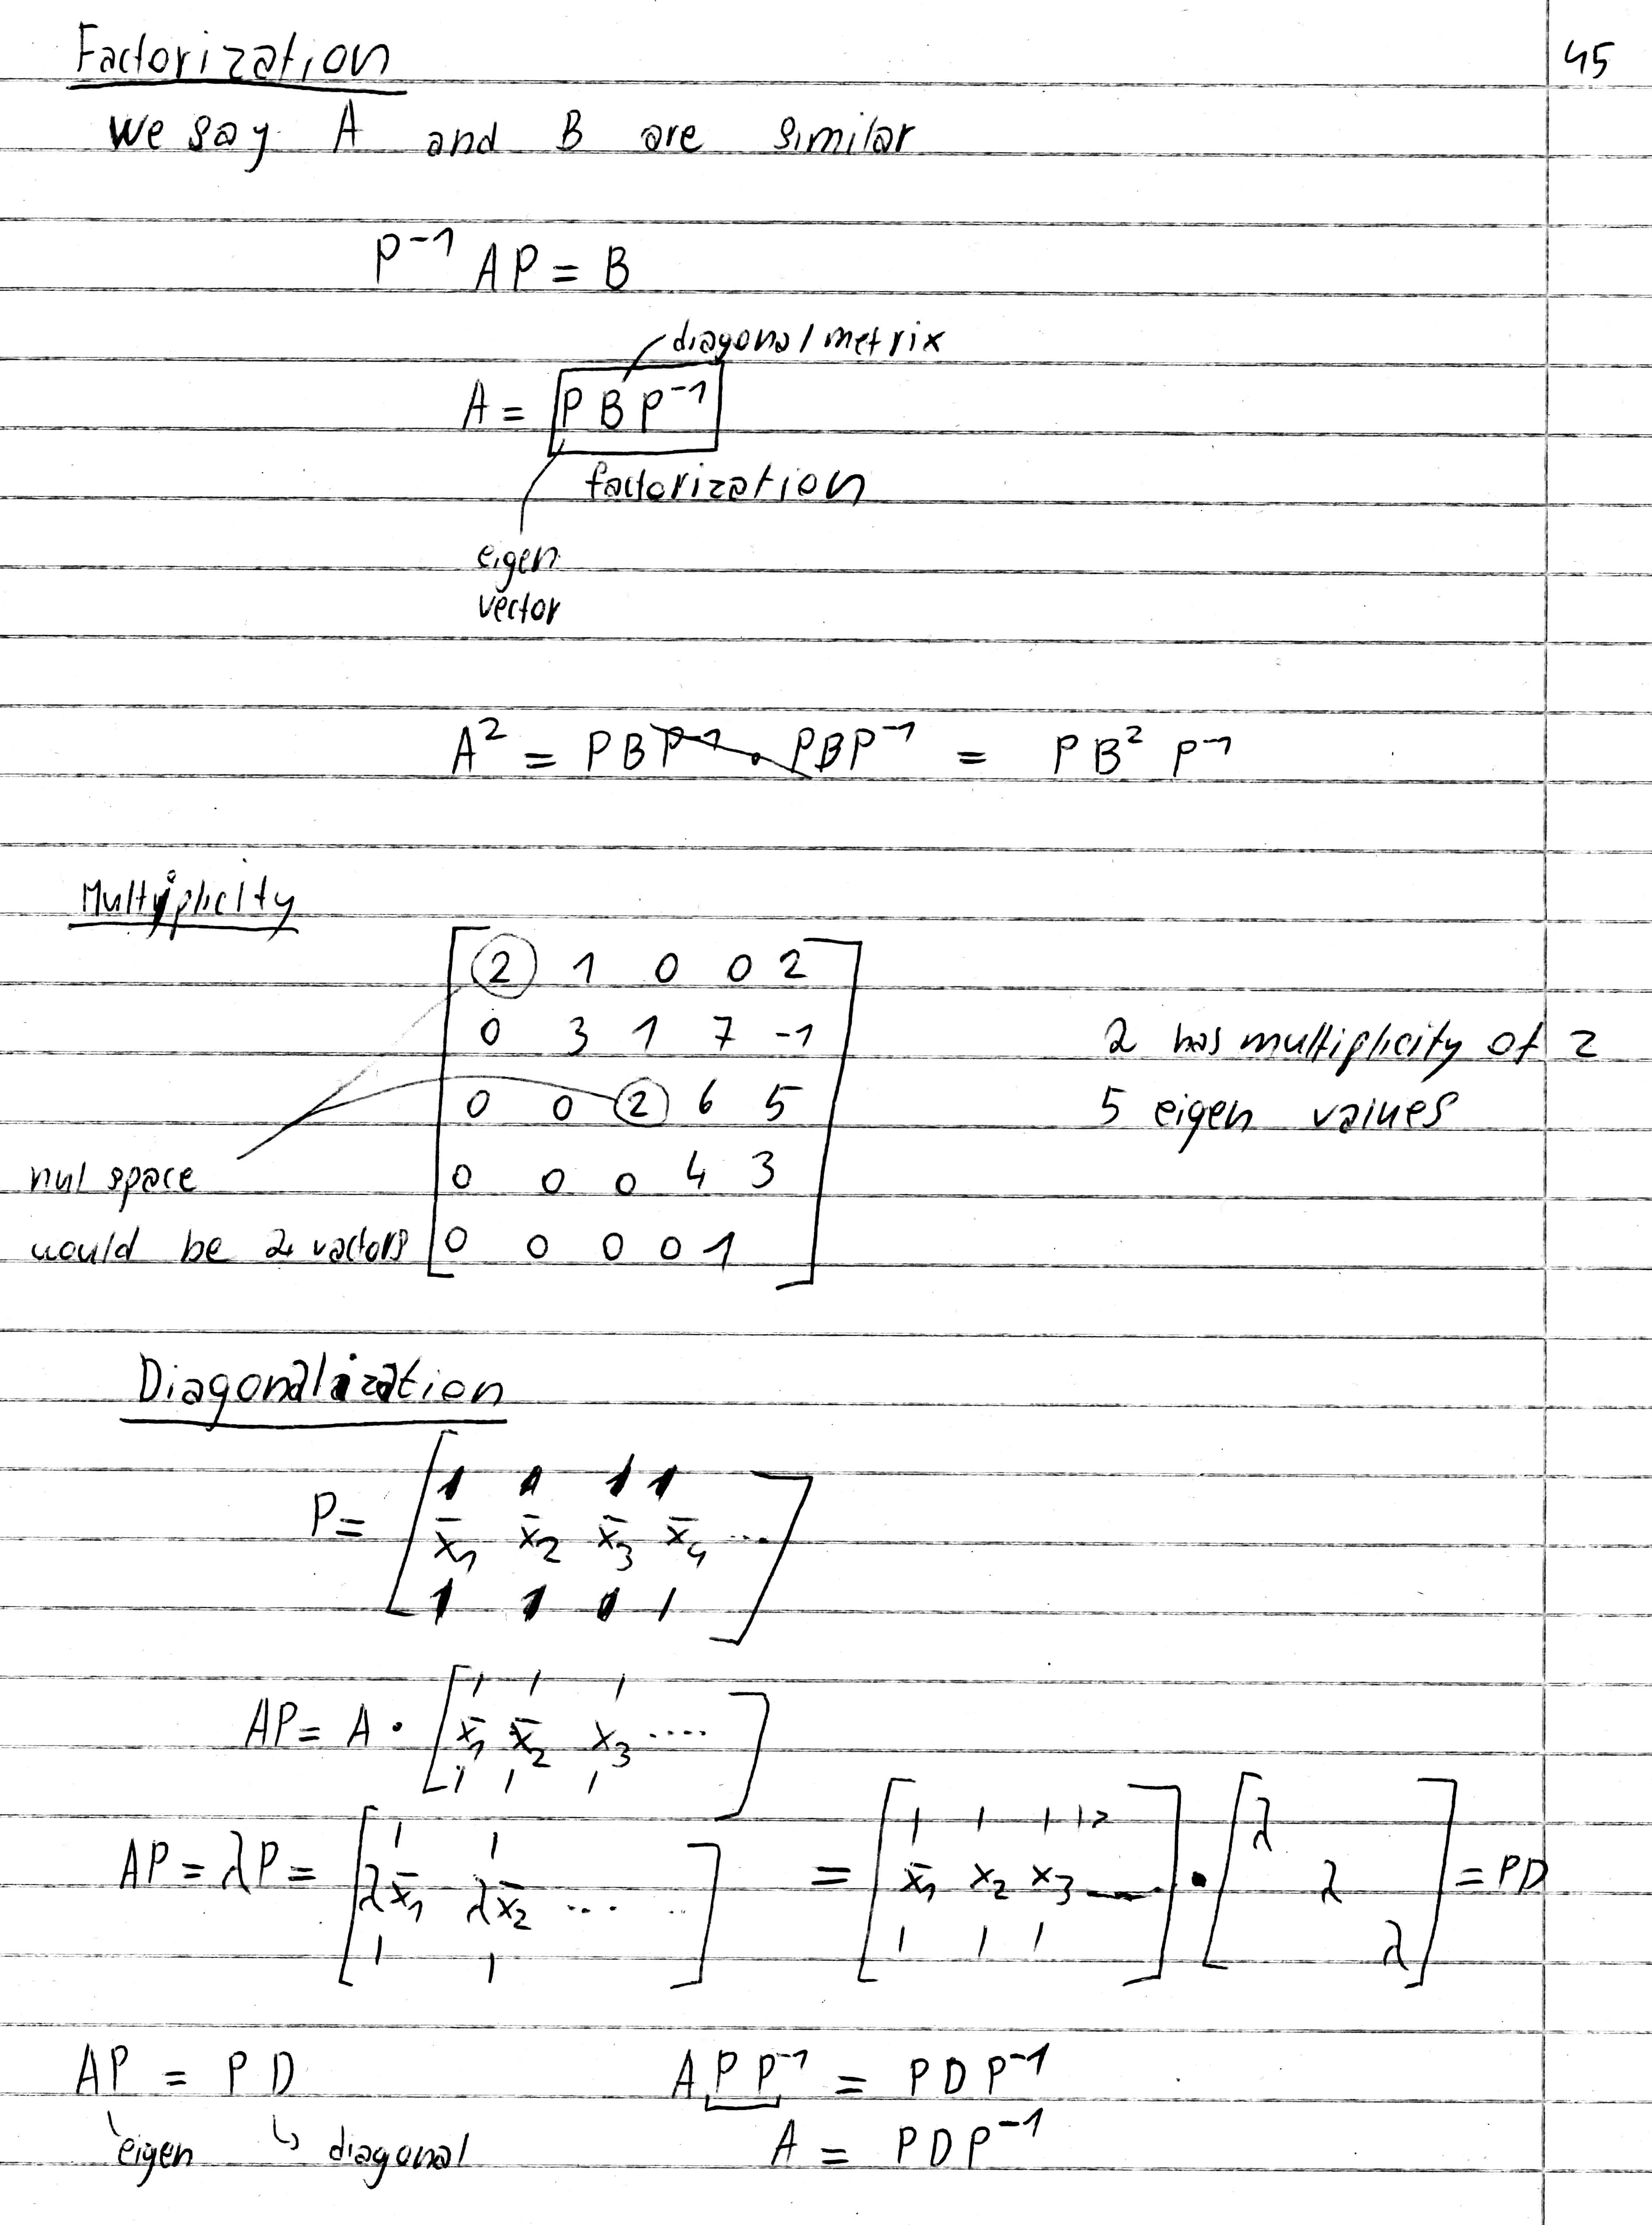 Factorization
45
We say A and B are similar
P⁻¹ AP = B
diagonal metrix
A = P B P⁻¹
factorization
eigen
vector
A² = P B P⁻¹ . P B P⁻¹ = P B² P⁻¹
Multiplicity
2 1 0 0 2
0 3 1 7 -1
2 has multiplicity of 2
0 0 2 6 5
5 eigen values
nul space
0 0 0 4 3
would be 2 vactors
0 0 0 0 1
Diagonalization
P = [x̄₁ x̄₂ x̄₃ x̄₄ ...]
AP = A · [x̄₁ x̄₂ x₃ ....]
AP = λP = [λx̄₁ λx̄₂ ... ..] = [x̄₁ x₂ x₃] · [λ λ λ] = PD
AP = PD
A P P⁻¹ = P D P⁻¹
eigen ↳ diagonal
A = P D P⁻¹